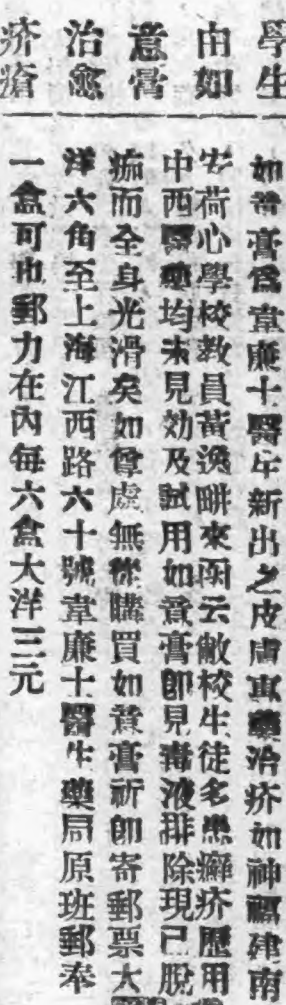 學生
由如
意膏
治愈
疥瘡
如意膏爲韋廉士醫生新出之皮膚聖藥治疥如神福建南
安荷心學校教員黃逸畊來函云敝校生徒多患癬疥歷用
中西醫藥均未見効及試用如意膏卽見毒液排除現已脫
痂而全身光滑矣如尊處無從購買如意膏祈卽寄郵票大
洋六角至上海江西路六十號韋廉士醫生藥局原班郵奉
一盒可也郵力在內每六盒大洋三元